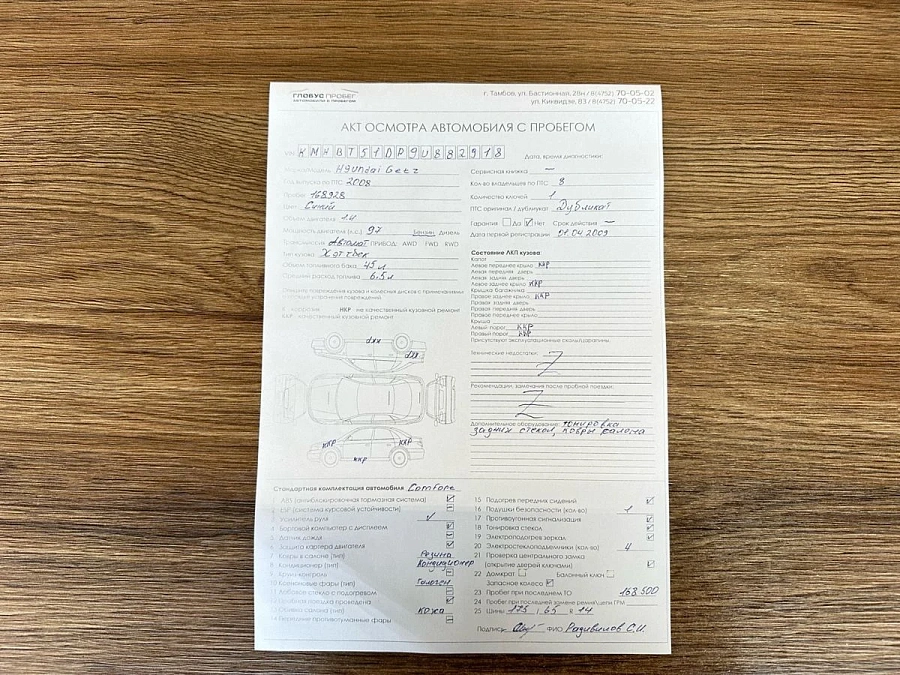 ГЛОБУС ПРОБЕГ
АВТОМОБИЛИ С ПРОБЕГОМ
г. Тамбов, ул. Бастионная, 28н / 8(4752) 70-05-02
ул. Киквидзе, 83 / 8(4752) 70-05-22
АКТ ОСМОТРА АВТОМОБИЛЯ С ПРОБЕГОМ
VIN KMHBT51DP9U882918
Марка/Модель Hyundai Getz
Год выпуска по ПТС 2008
Пробег 168928
Цвет Синий
Объем двигателя 1.4
Мощность двигателя (л.с.) 97 Бензин Дизель
Трансмиссия Автомат ПРИВОД: AWD FWD RWD
Тип кузова Хэтчбек
Объем топливного бака 45 л
Средний расход топлива 6.5 л
Дата, время диагностики:
Сервисная книжка —
Кол-во владельцев по ПТС 8
Количество ключей 1
ПТС оригинал / дубликат Дубликат
Гарантия Да Нет Срок действия —
Дата первой регистрации 01.04.2009
повреждения кузова и колесных дисков с примечаниями
устранения повреждений.
НКР - не качественный кузовной ремонт
ККР - качественный кузовной ремонт
ккр
ккр
ккр
ккр
ккр
Состояние ЛКП кузова
Капот
Левое переднее крыло ккр
Левая передняя дверь
Левая задняя дверь
Левое заднее крыло ккр
Крышка багажника
Правое заднее крыло ккр
Правая задняя дверь
Правая передняя дверь
Правое переднее крыло
Крыша
Левый порог ккр
Правый порог ккр
Присутствуют эксплуатационные сколы/царапины.
Технические недостатки:
Z
Рекомендации, замечания после пробной поездки:
Z
Дополнительное оборудование: тонировка
задних стекол, ковры салона
Стандартная комплектация автомобиля Comfort
1 ABS (антиблокировочная тормозная система)
2 ESP (система курсовой устойчивости)
3 Усилитель руля
4 Бортовой компьютер с дисплеем
5 Датчик дождя
6 Защита картера двигателя
7 Ковры в салоне (тип) Резина
8 Кондиционер (тип) Кондиционер
9 Круиз-контроль
10 Ксеноновые фары (тип) Галоген
11 Лобовое стекло с подогревом
12 Пробная поездка проведена
13 Обивка салона (тип) кожа
14 Передние противотуманные фары
15 Подогрев передних сидений
16 Подушки безопасности (кол-во) 1
17 Противоугонная сигнализация
18 Тонировка стекол
19 Электроподогрев зеркал
20 Электростеклоподъемники (кол-во) 4
21 Проверка центрального замка
(открытие дверей ключами)
22 Домкрат Балонный ключ
Запасное колесо
23 Пробег при последнем ТО 168500
24 Пробег при последней замене ремня/цепи ГРМ
25 Шины 175 / 65 R 14
Подпись ФИО Радивилов С.И.